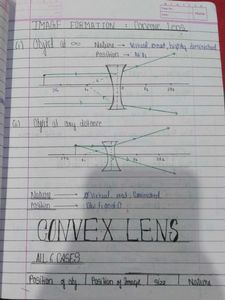 IMAGE FORMATION : Concave Lens
(i) Object at ∞ Nature → Virtual, erect, highly diminished
Position → At F₁
2F₁ F₁ F₂ 2F₂
(ii) Object at any distance
2F₁ F₁ 2F₂
Nature → Virtual, erect, Diminished
Position → b/w F₁ and O
CONVEX LENS
ALL 6 CASES
Position of obj | Position of Image | size | Nature